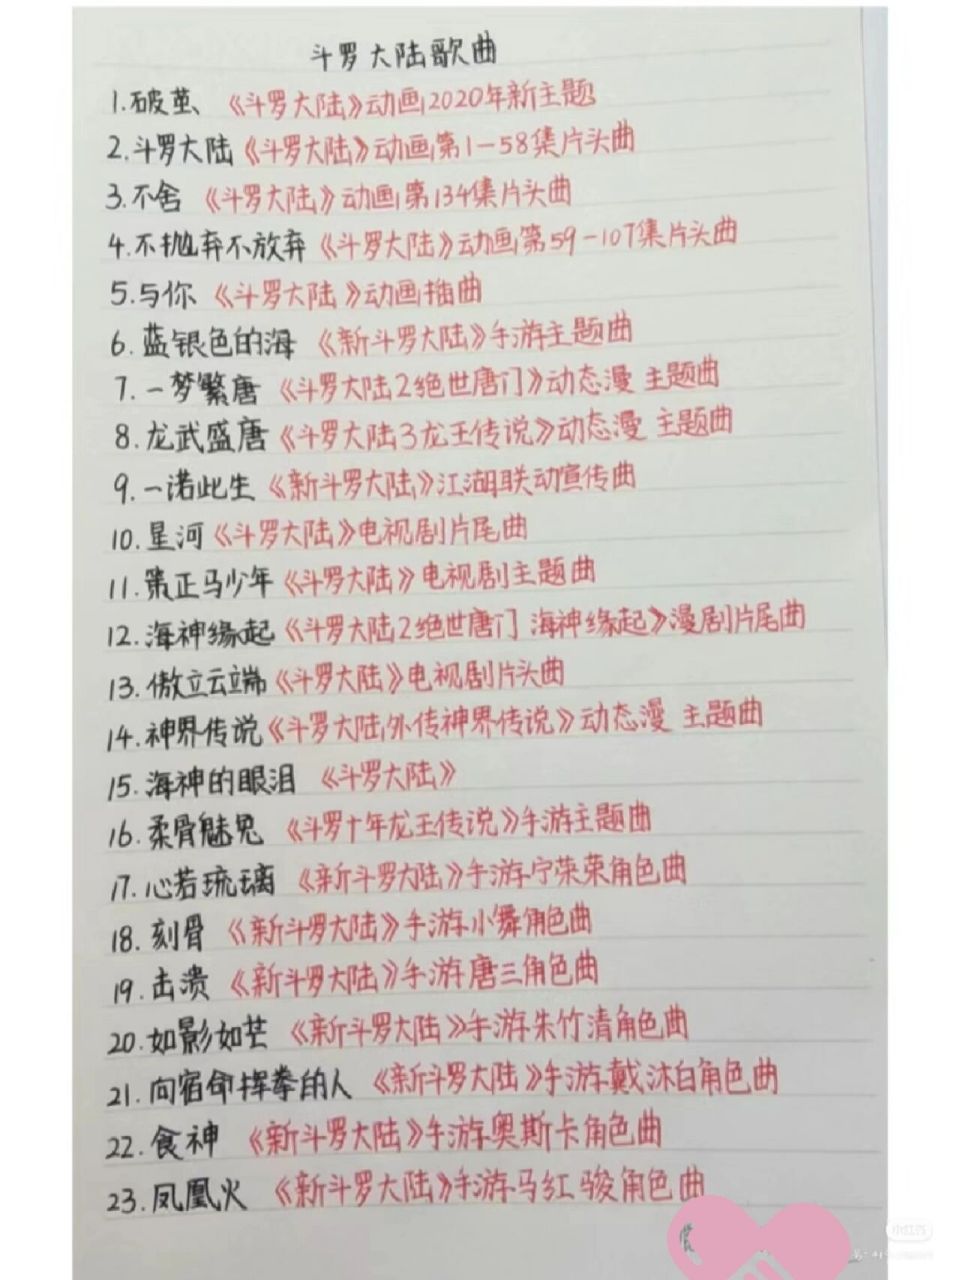 斗罗大陆歌曲
1.破茧、《斗罗大陆》动画2020年新主题
2.斗罗大陆《斗罗大陆》动画第1-58集片头曲
3.不舍《斗罗大陆》动画第134集片头曲
4.不抛弃不放弃《斗罗大陆》动画第59-107集片头曲
5.与你《斗罗大陆》动画插曲
6.蓝银色的海《新斗罗大陆》手游主题曲
7.一梦繁唐《斗罗大陆2绝世唐门》动态漫 主题曲
8.龙武盛唐《斗罗大陆3龙王传说》动态漫 主题曲
9.一诺此生《新斗罗大陆》江湖联动宣传曲
10.星河《斗罗大陆》电视剧片尾曲
11.策正马少年《斗罗大陆》电视剧主题曲
12.海神缘起《斗罗大陆2绝世唐门 海神缘起》漫剧片尾曲
13.傲立云端《斗罗大陆》电视剧片头曲
14.神界传说《斗罗大陆外传神界传说》动态漫 主题曲
15.海神的眼泪《斗罗大陆》
16.柔骨魅兔《斗罗十年龙王传说》手游主题曲
17.心若琉璃《新斗罗大陆》手游.宁荣荣角色曲
18.刻骨《新斗罗大陆》手游.小舞角色曲
19.击溃《新斗罗大陆》手游.唐三角色曲
20.如影如芒《新斗罗大陆》手游.朱竹清角色曲
21.向宿命挥拳的人《新斗罗大陆》手游.戴沐白角色曲
22.食神《新斗罗大陆》手游.奥斯卡角色曲
23.凤凰火《新斗罗大陆》手游.马红骏角色曲
小红书